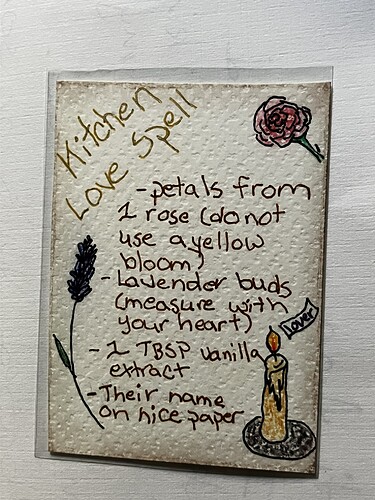 Kitchen
Love Spell
- petals from
1 rose (do not
use a yellow
bloom)
- Lavender buds
(measure with
your heart)
- 1 TBSP vanilla
extract
- Their name
on nice paper
Lover